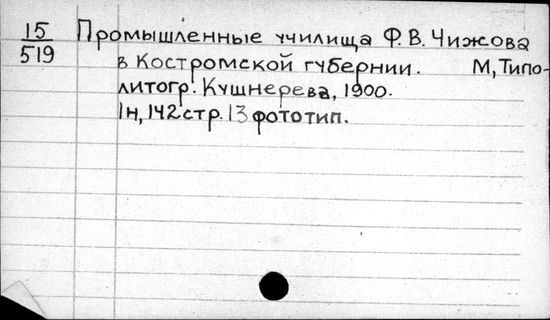 15 Промышленные училища Ф.В. Чижова
519 в Костромской губернии. М, Типо-
литогр. Кушнерева, 1900.
1н, 142 стр. 13 фототип.